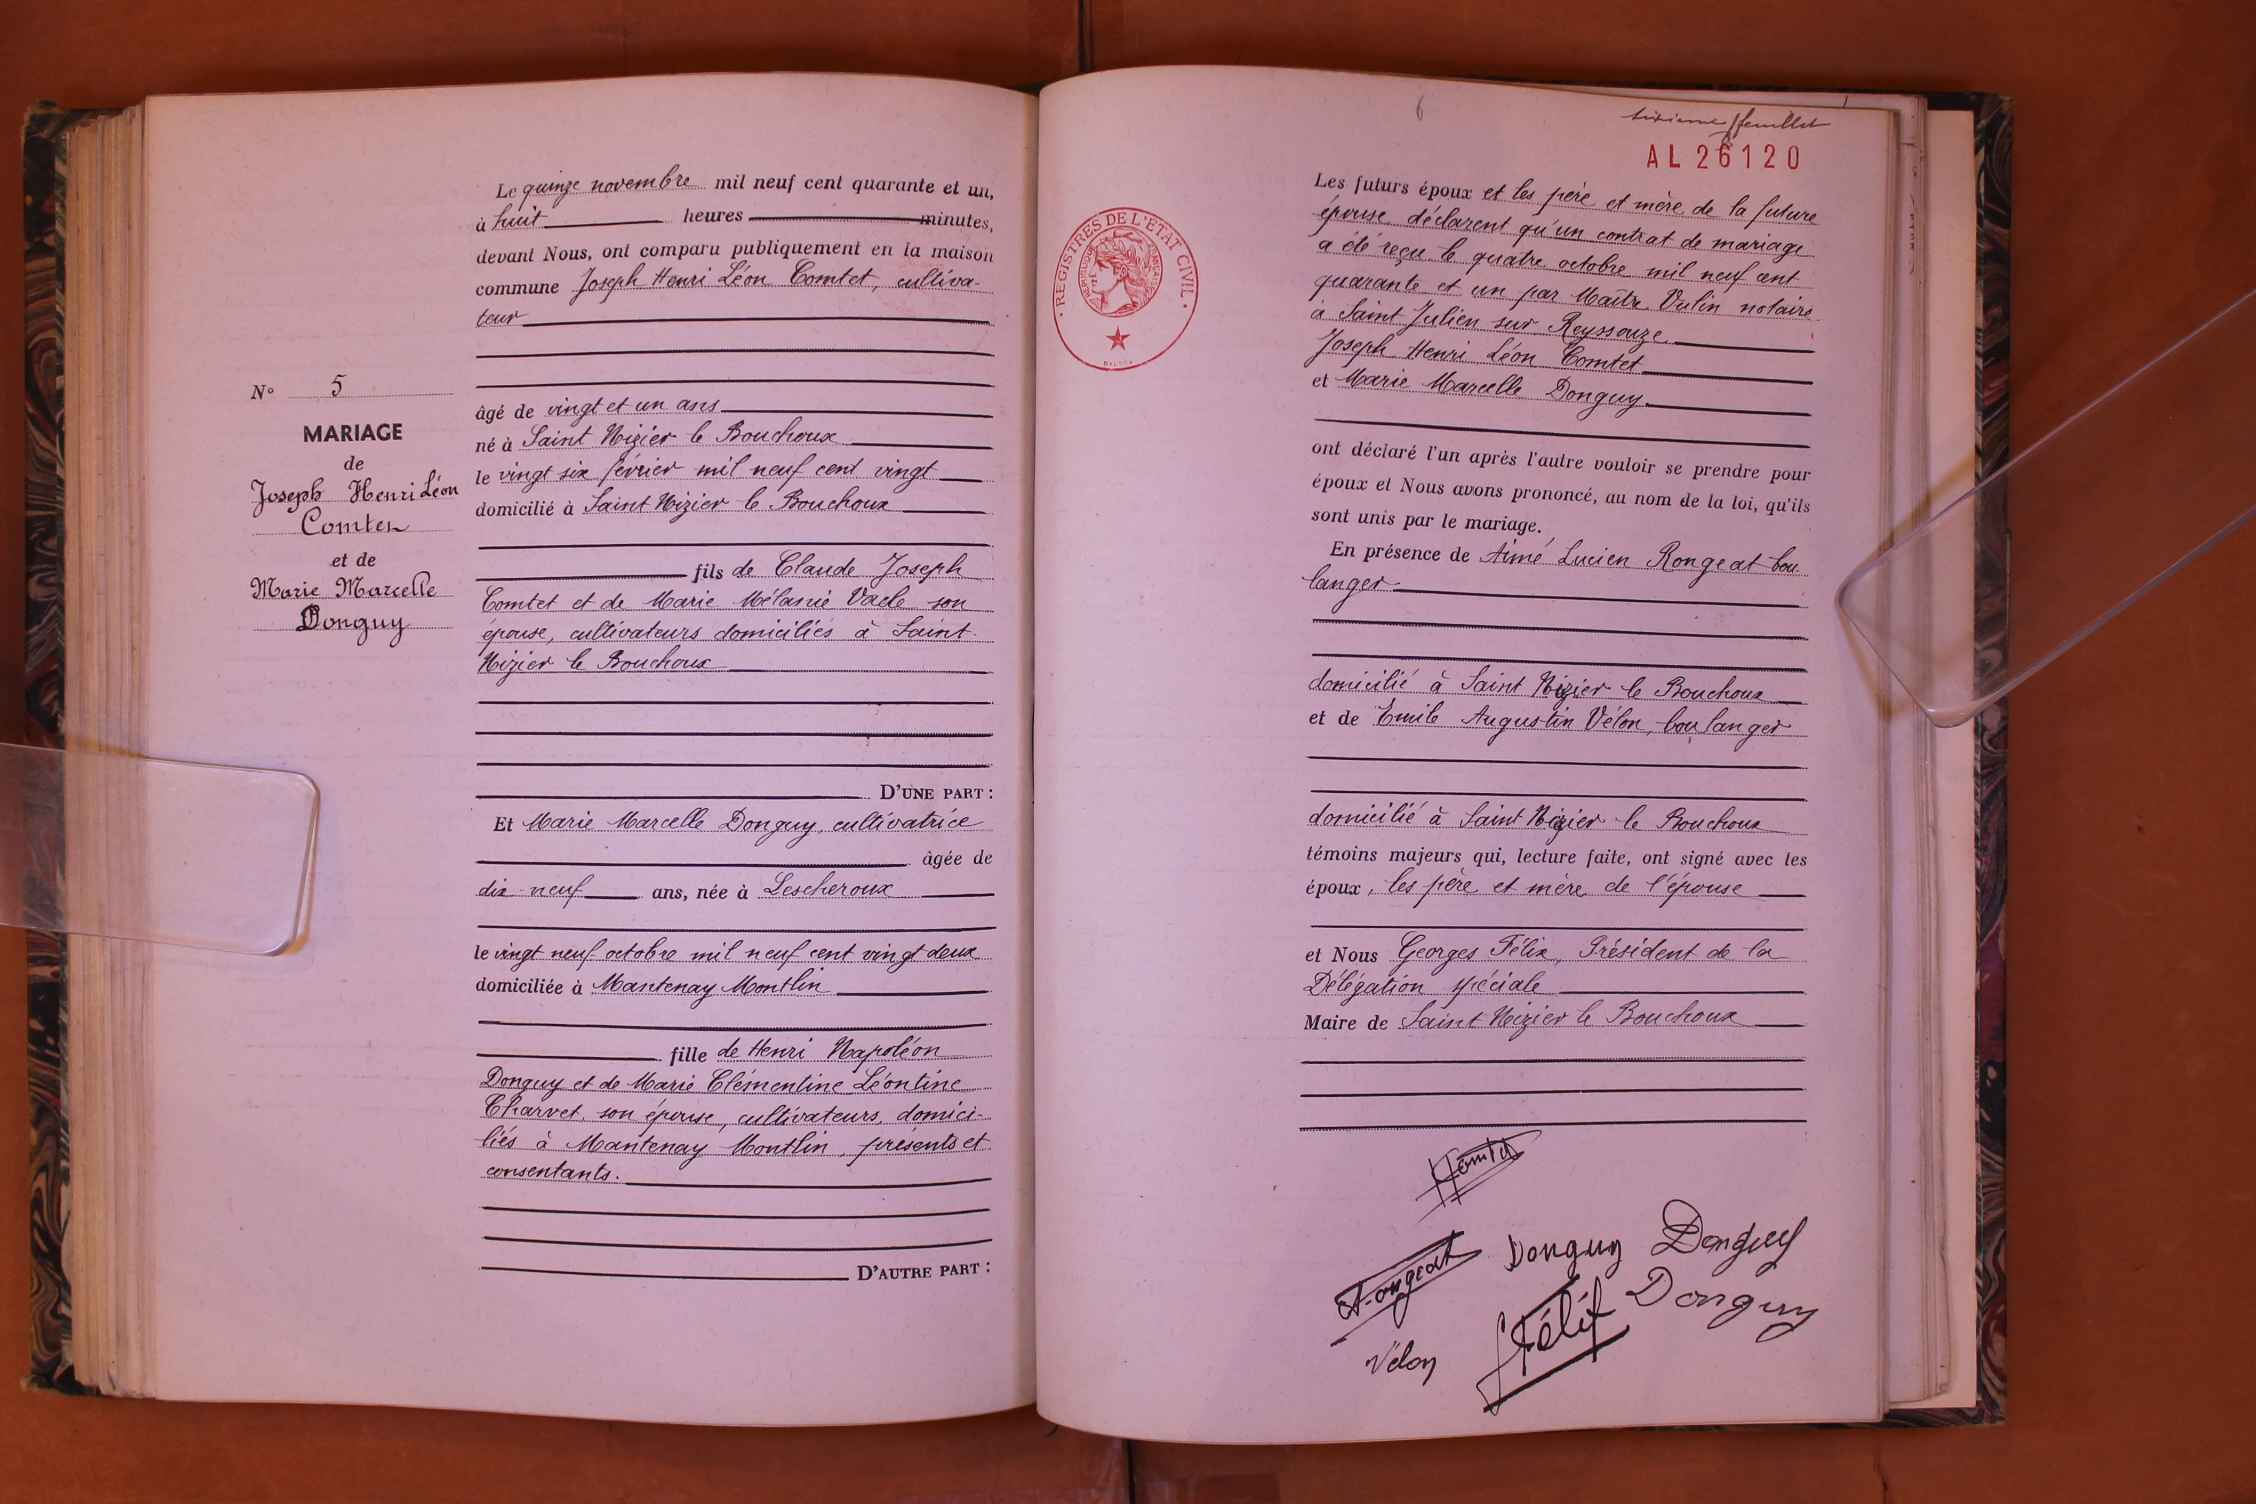 Le quinze novembre mil neuf cent quarante et un,
à huit heures minutes,
devant Nous, ont comparu publiquement en la maison
commune Joseph Henri Léon Comtet, cultiva-
teur
N° 5
MARIAGE
de
Joseph Henri Léon
Comtet
et de
Marie Marcelle
Donguy
âgé de vingt et un ans
né à Saint Nizier le Bouchoux
le vingt six février mil neuf cent vingt
domicilié à Saint Nizier le Bouchoux
fils de Claude Joseph
Comtet et de Marie Mélanie son
épouse, cultivateurs domiciliés à Saint
Nizier le Bouchoux
D'UNE PART :
Et Marie Marcelle Donguy, cultivatrice
âgée de
dix-neuf ans, née à Lescheroux
le vingt neuf octobre mil neuf cent vingt deux
domiciliée à Mantenay Montlin
fille de Henri Napoléon
Donguy et de Marie Clémentine Léontine
Charvet, son épouse, cultivateurs, domici-
liés à Mantenay Montlin, présents et
consentants.
D'AUTRE PART :
6
sixième feuillet
AL 26120
REGISTRES DE L'ÉTAT CIVIL
RÉPUBLIQUE FRANÇAISE
Les futurs époux et les père et mère de la future
épouse déclarent qu'un contrat de mariage
a été reçu le quatre octobre mil neuf cent
quarante et un par Maître Vulin notaire
à Saint Julien sur Reyssouze.
Joseph Henri Léon Comtet
et Marie Marcelle Donguy
ont déclaré l'un après l'autre vouloir se prendre pour
époux et Nous avons prononcé, au nom de la loi, qu'ils
sont unis par le mariage.
En présence de Aimé Lucien Rongeat bou
langer
domicilié à Saint Nizier le Bouchoux
et de Emile Augustin Vélon, boulanger
domicilié à Saint Nizier le Bouchoux
témoins majeurs qui, lecture faite, ont signé avec les
époux, les père et mère de l'épouse
et Nous Georges Félix, Président de la
Délégation spéciale
Maire de Saint Nizier le Bouchoux
Comtet
Rongeat
Donguy Donguy
Donguy
Félix
Vélon